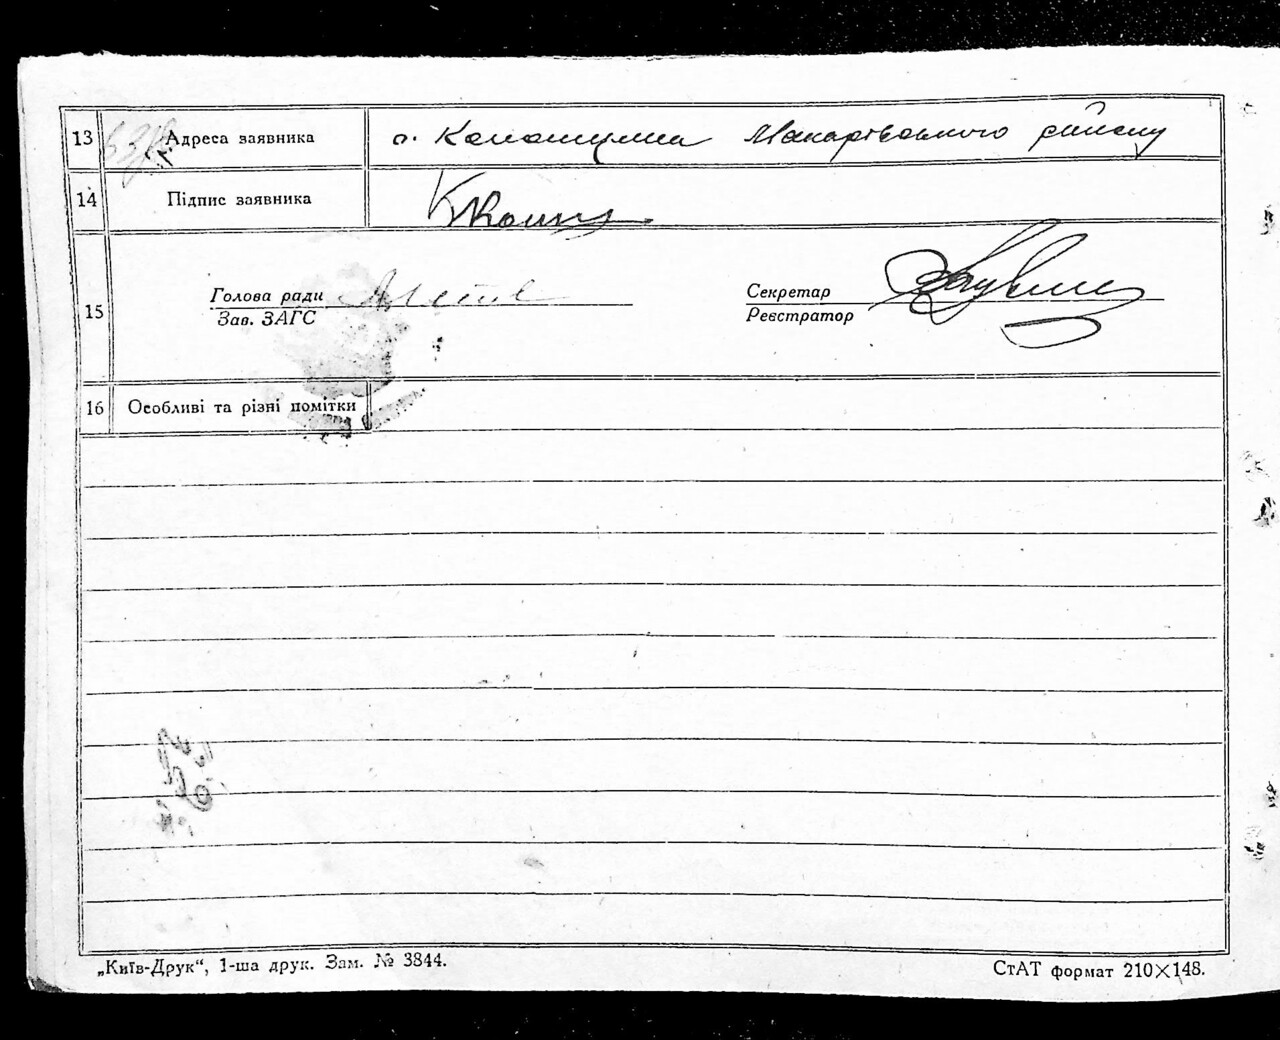 13 Адреса заявника с. Копашулма Макарівського району
14 Підпис заявника
15 Голова ради
Зав. ЗАГС
Секретар
Реєстратор
16 Особливі та різні помітки
„Київ-Друк“, 1-ша друк. Зам. № 3844.
СтАТ формат 210×148.